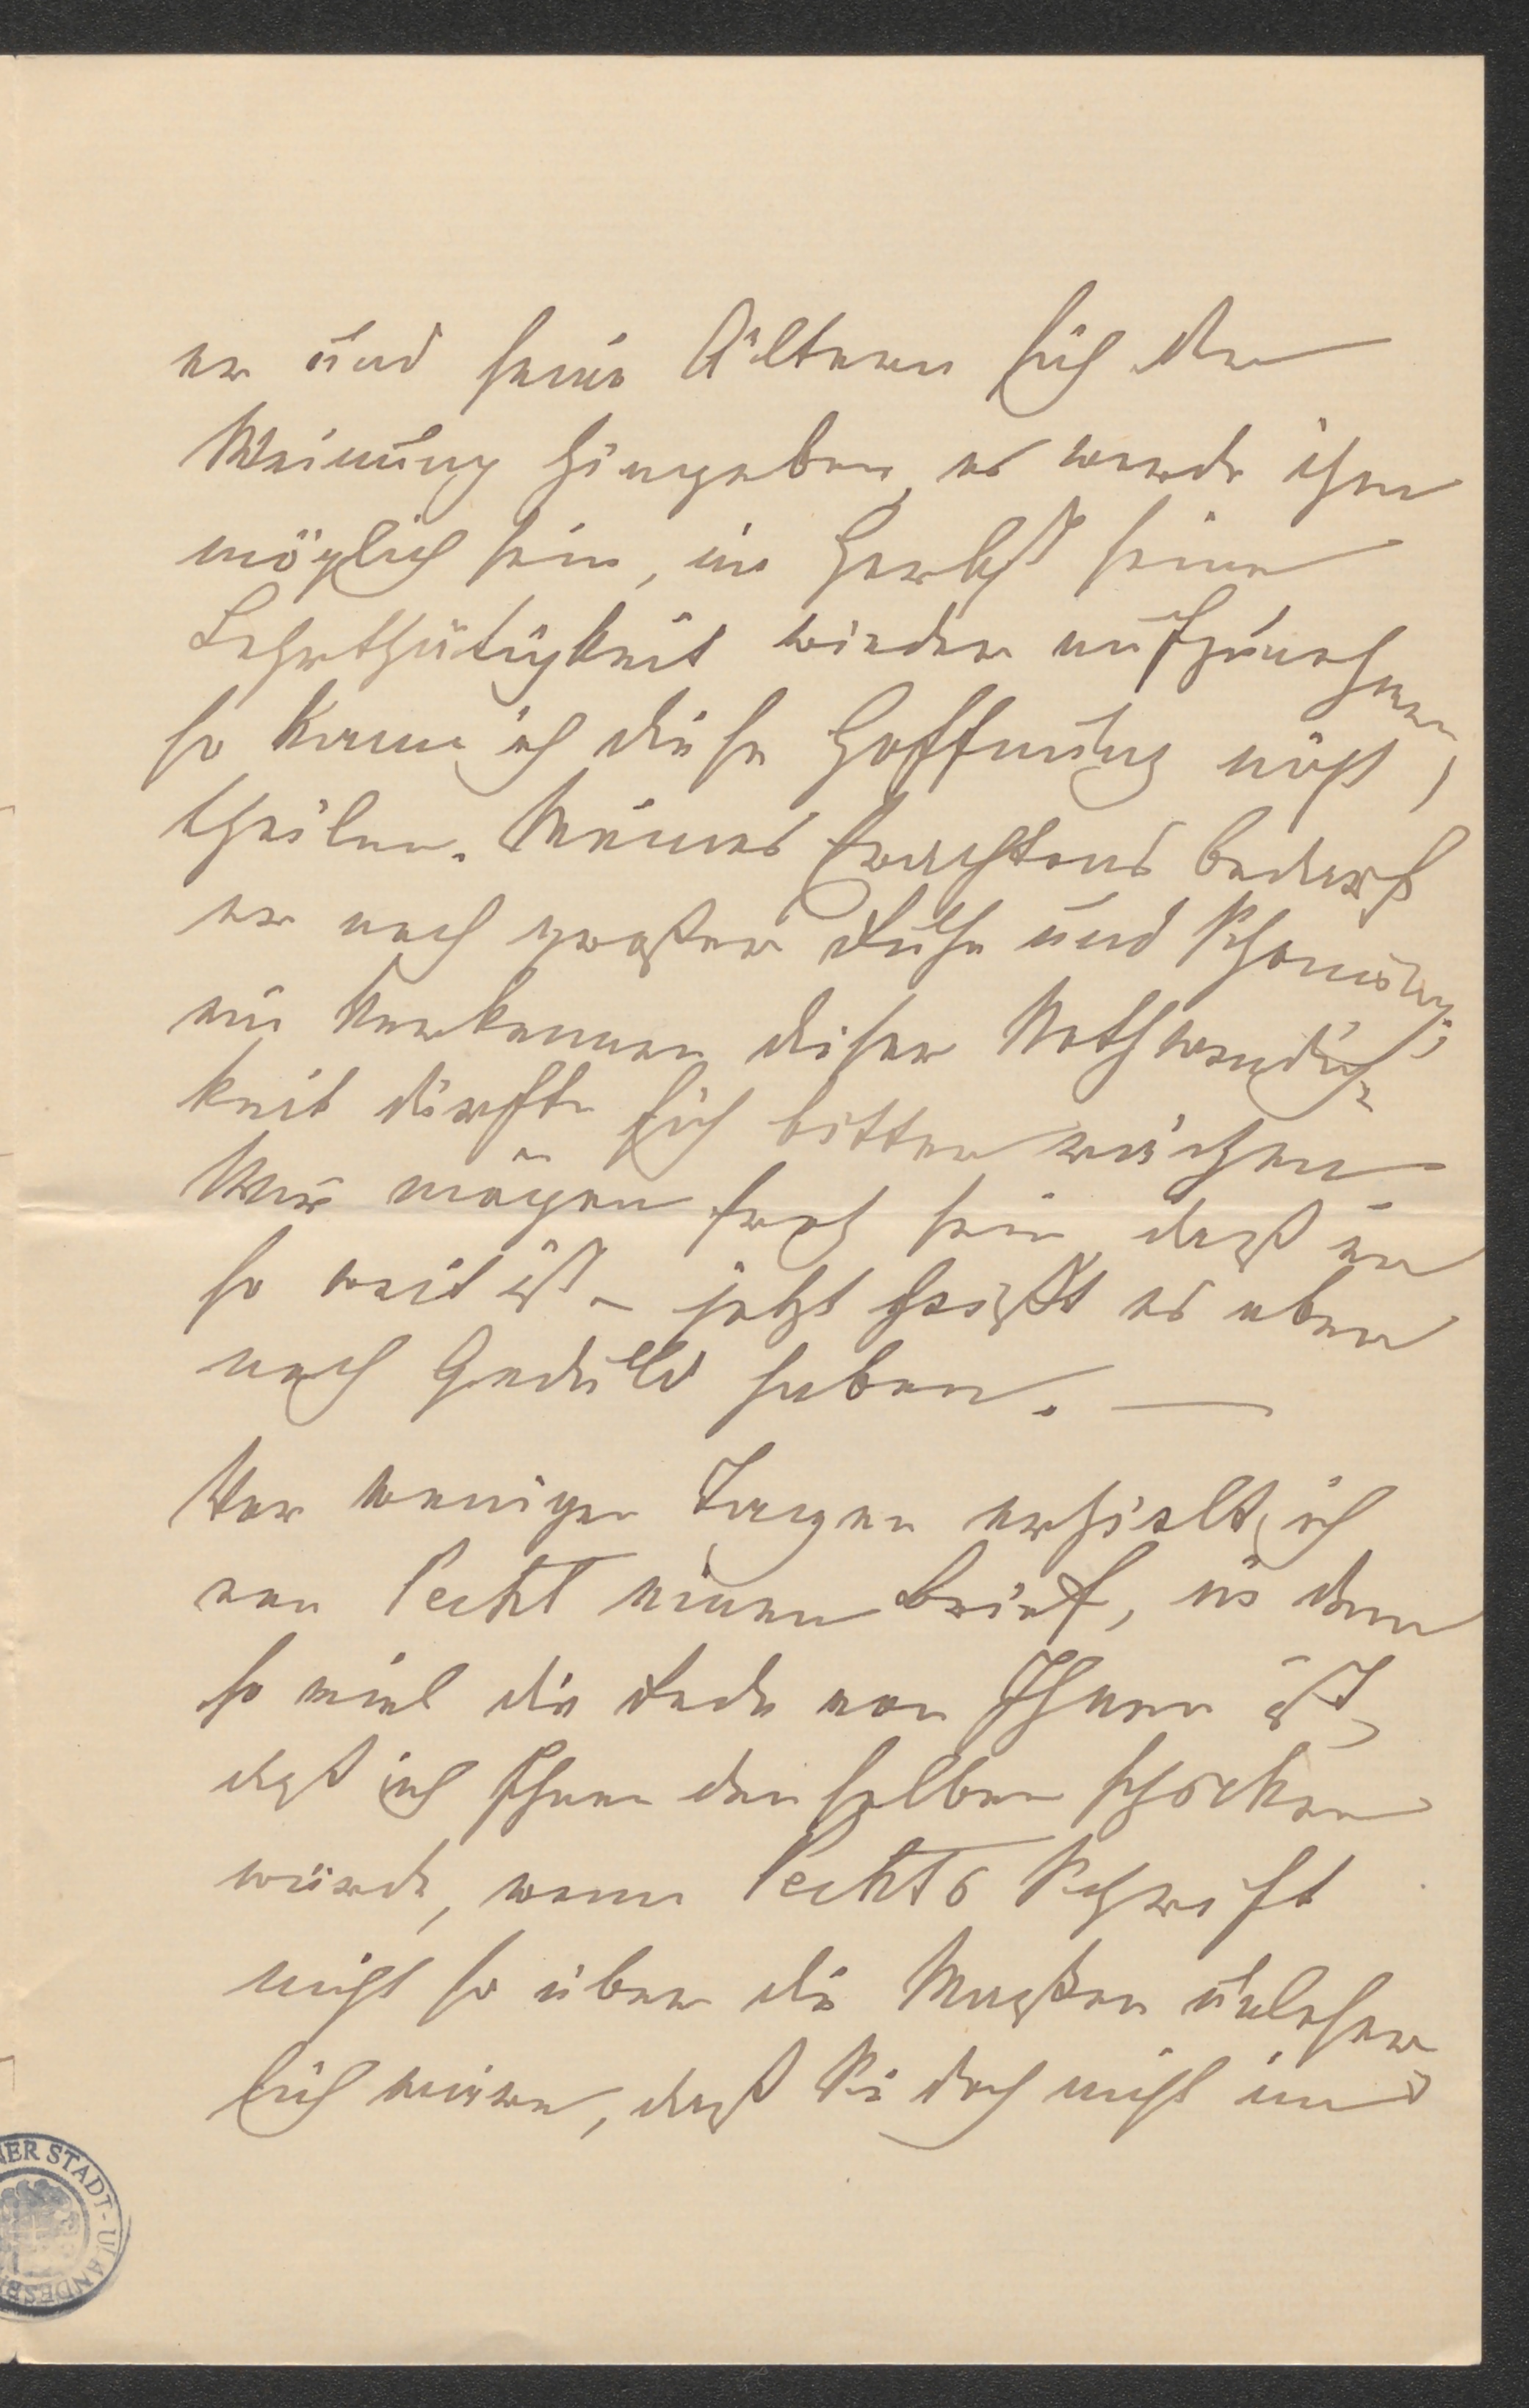 er und seine Ältern sich der
Meinung hingeben, es werde ihm
möglich sein, im Herbst seine
Lehrthätigkeit wieder aufzunehmen,
so kann ich diese Hoffnung nicht
theilen. Meines Erachtens bedarf
er noch großer Ruhe und Schonung;
ein Verkennen dieser Nothwendig-
keit dürfte sich bitter rächen.
Wir mögen froh sein daß er
so weit ist – jetzt heißt es aber
noch Geduld haben. —
Vor wenigen Tagen erhielt ich
von Pecht einen Brief, in dem
so viel die Rede von Ihnen ist,
daß ich Ihnen denselben schicken
würde, wenn Pechts Schrift
nicht so über die Maßen unleser-
lich wäre, daß Sie doch nicht im
NER STADT- U. LANDESB